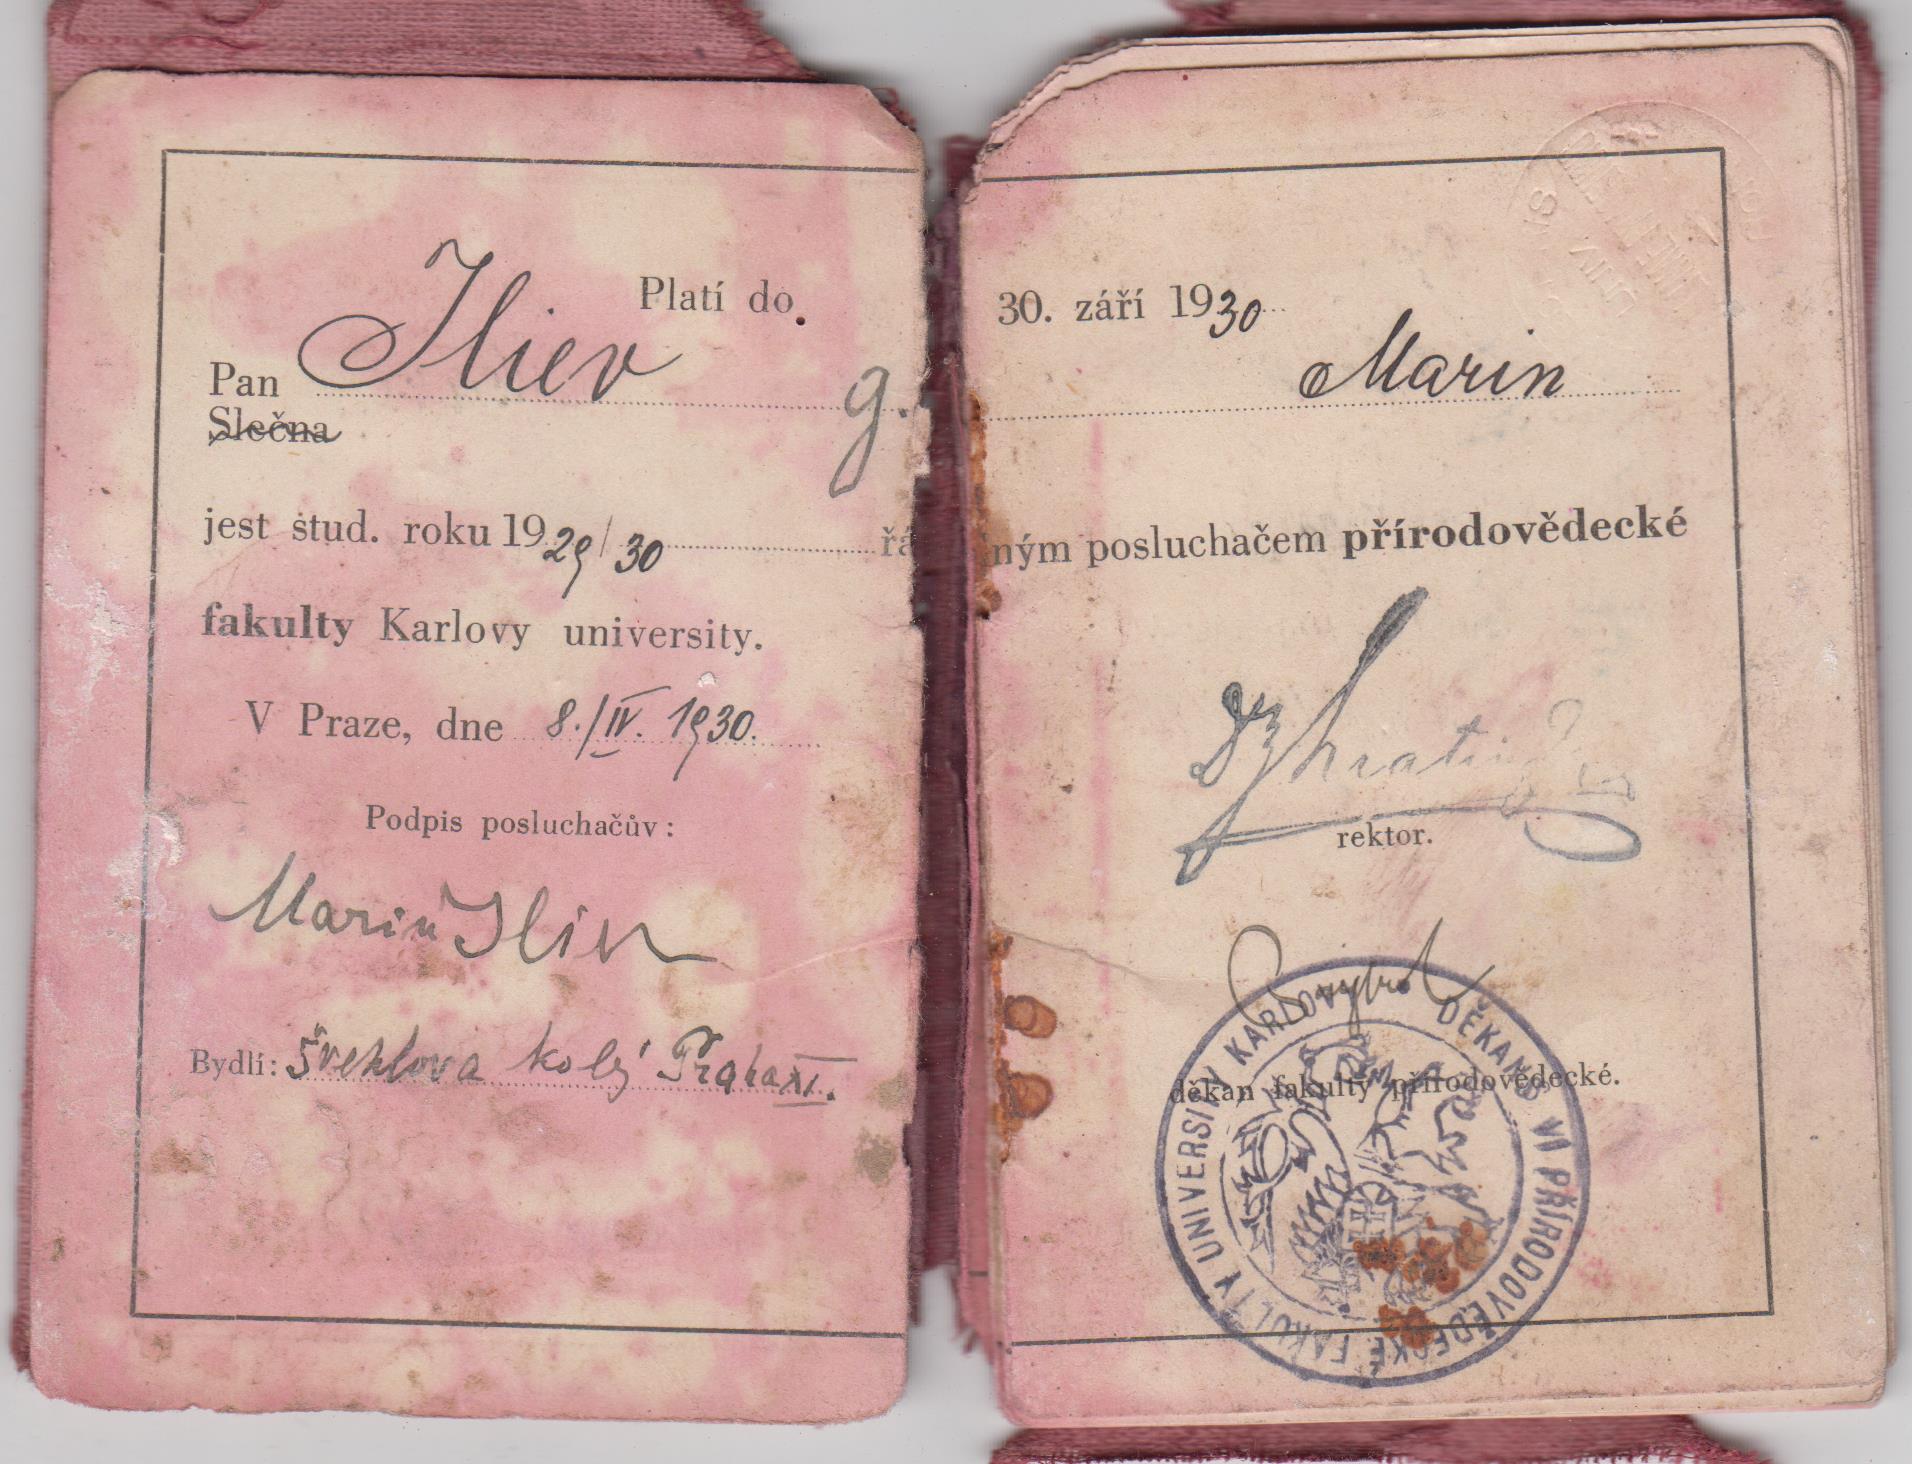 Platí do 30. září 1930
Pan Iliev g. Marin
Slečna
jest stud. roku 1929/30 řá ným posluchačem přírodovědecké
fakulty Karlovy university.
V Praze, dne 8./IV. 1930.
Podpis posluchačův:
Marin Iliev
rektor.
Bydlí: Švehlova kolej Praha XI.
děkan fakulty přírodovědecké.
DĚKANSTVÍ PŘÍRODOVĚDECKÉ FAKULTY UNIVERSITY KARLOVY